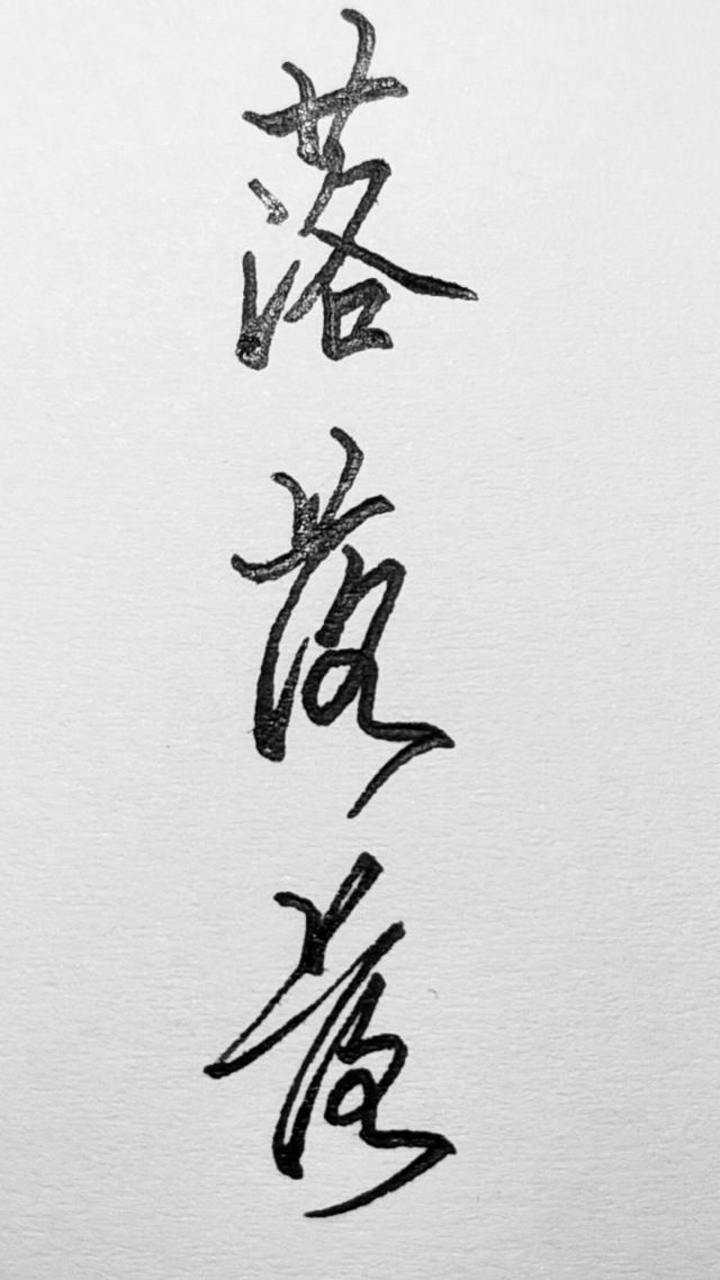 落
落
落